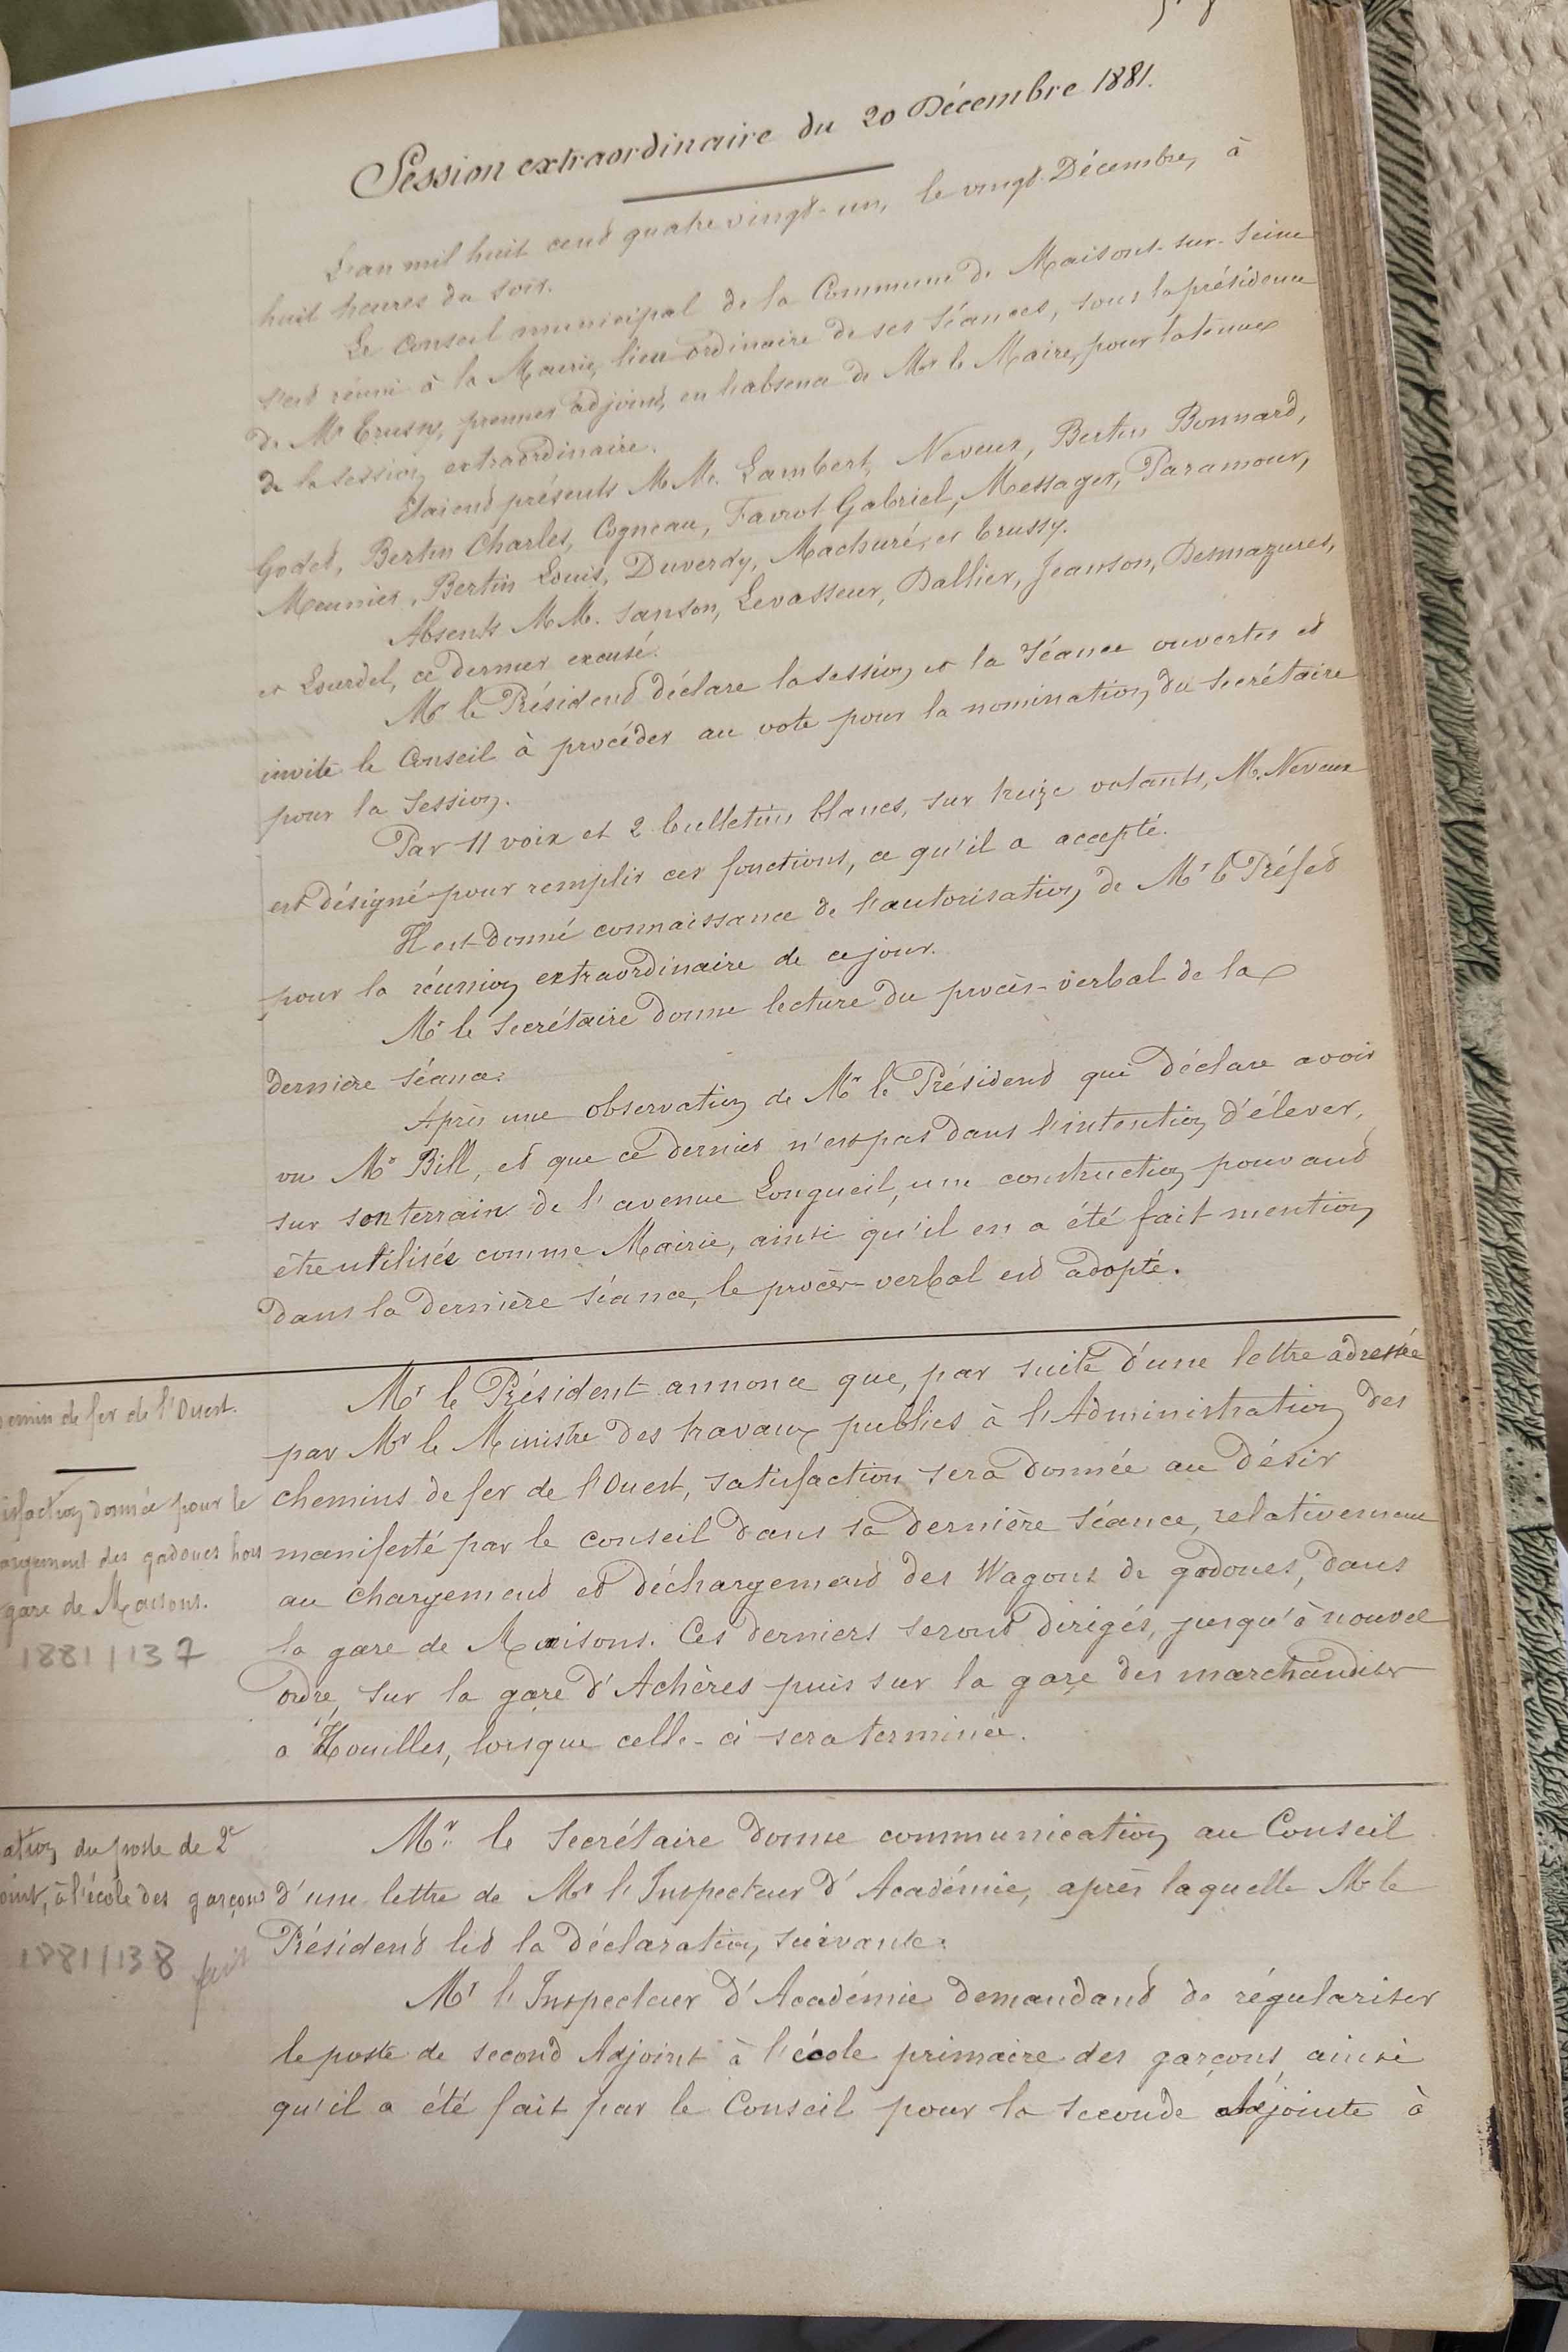 Session extraordinaire du 20 Décembre 1881.
L'an mil huit cent quatre vingt-un, le vingt Décembre, à
huit heures du soir.
Le Conseil municipal de la Commune de Maisons-sur-Seine
s'est réuni à la Mairie, lieu ordinaire de ses séances, sous la présidence
de Mr Trussy, premier adjoint, en l'absence de Mr le Maire, pour la tenue
de la session extraordinaire.
Etaient présents MM. Lambert, Neveux, Bertin Bonnard,
Godet, Bertin Charles, Cogneau, Favrot Gabriel, Messager, Paramour,
Meunier, Bertin Louis, Duverdy, Machuré, et Trussy.
Absents MM. Sanson, Levasseur, Dallier, Jeanson, Desmazures,
et Lourdel, ce dernier excusé.
Mr le Président déclare la session et la séance ouvertes et
invite le Conseil à procéder au vote pour la nomination du Secrétaire
pour la Session.
Par 11 voix et 2 bulletins blancs, sur treize votants, M. Neveux
est désigné pour remplir ces fonctions, ce qu'il a accepté.
Il est donné connaissance de l'autorisation de Mr le Préfet
pour la réunion extraordinaire de ce jour.
Mr le Secrétaire donne lecture du procès-verbal de la
dernière séance.
Après une observation de Mr le Président qui déclare avoir
vu Mr Bill, et que ce dernier n'est pas dans l'intention d'élever,
sur son terrain de l'avenue Longueil, une construction pouvant
être utilisée comme Mairie, ainsi qu'il en a été fait mention
dans la dernière séance, le procès-verbal est adopté.
emin de fer de l'Ouest.
isfaction donnée pour le
argement des gadoues hors
gare de Maisons.
1881/137
Mr le Président annonce que, par suite d'une lettre adressée
par Mr le Ministre des travaux publics à l'Administration des
chemins de fer de l'Ouest, satisfaction sera donnée au désir
manifesté par le conseil dans sa dernière séance, relativement
au chargement et déchargement des Wagons de gadoues, dans
la gare de Maisons. Ces derniers seront dirigés, jusqu'à nouvel
ordre, sur la gare d'Achères puis sur la gare des marchandises
à Houilles, lorsque celle-ci sera terminée.
ation du poste de 2e
oint, à l'école des garçons
1881/138 fait
Mr le Secrétaire donne communication au Conseil
d'une lettre de Mr l'Inspecteur d'Académie, après laquelle Mr le
Président lit la déclaration suivante:
Mr l'Inspecteur d'Académie demandant de régulariser
le poste de second Adjoint à l'école primaire des garçons ainsi
qu'il a été fait par le Conseil pour la seconde adjointe à